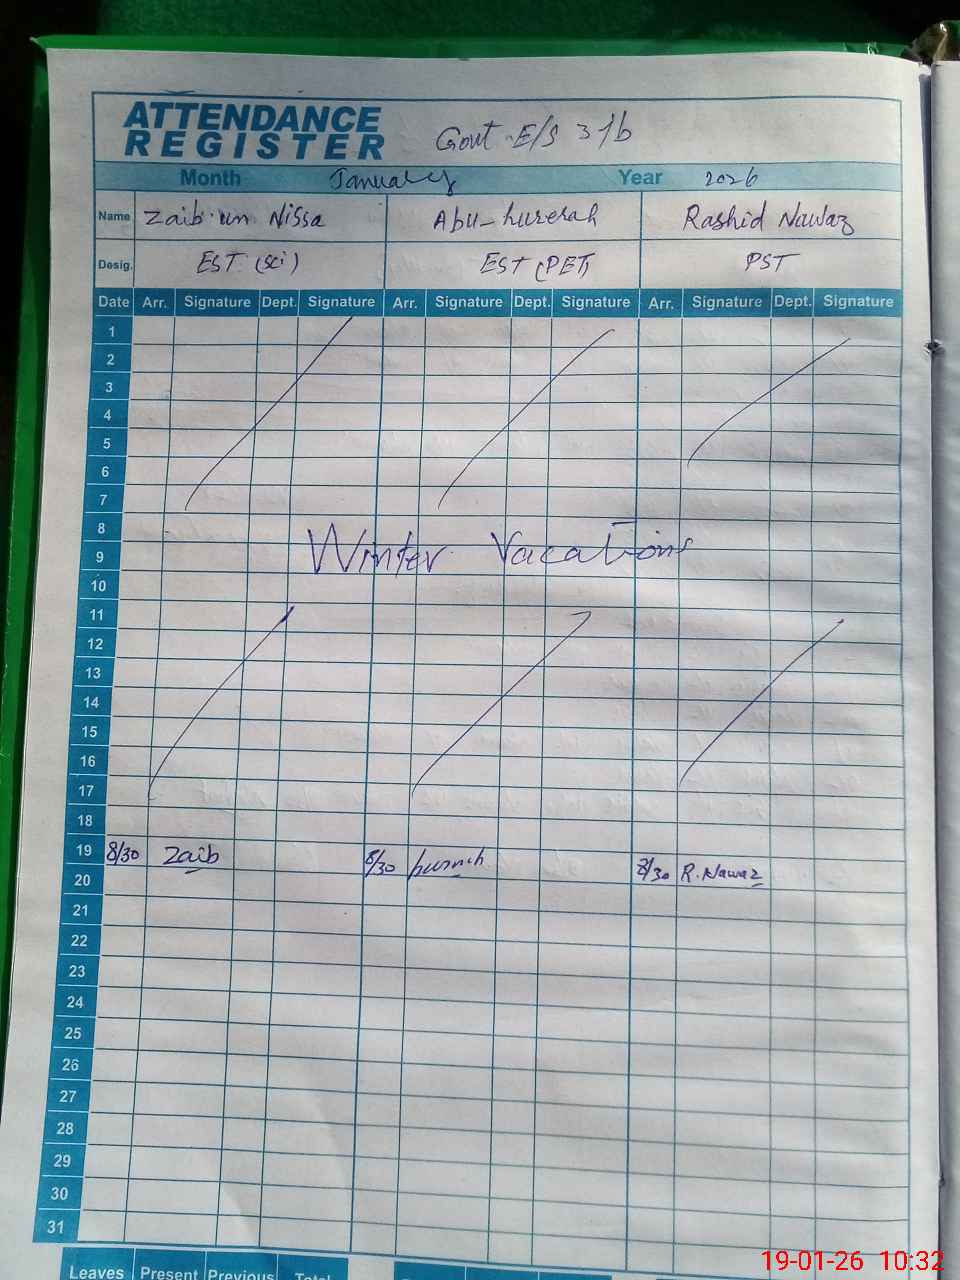 ATTENDANCE
REGISTER
Govt E/S 3 1b
Month January Year 2026
Name Zaib un Nissa Abu-hurerah Rashid Nawaz
Desig. EST (Sci) EST (PET) PST
Date Arr. Signature Dept. Signature Arr. Signature Dept. Signature Arr. Signature Dept. Signature
1
2
3
4
5
6
7
8
9 Winter Vacations
10
11
12
13
14
15
16
17
18
19 8/30 Zaib 8/30 8/30 R.Nawaz
20
21
22
23
24
25
26
27
28
29
30
31
Leaves Present Previous Total
19-01-26 10:32